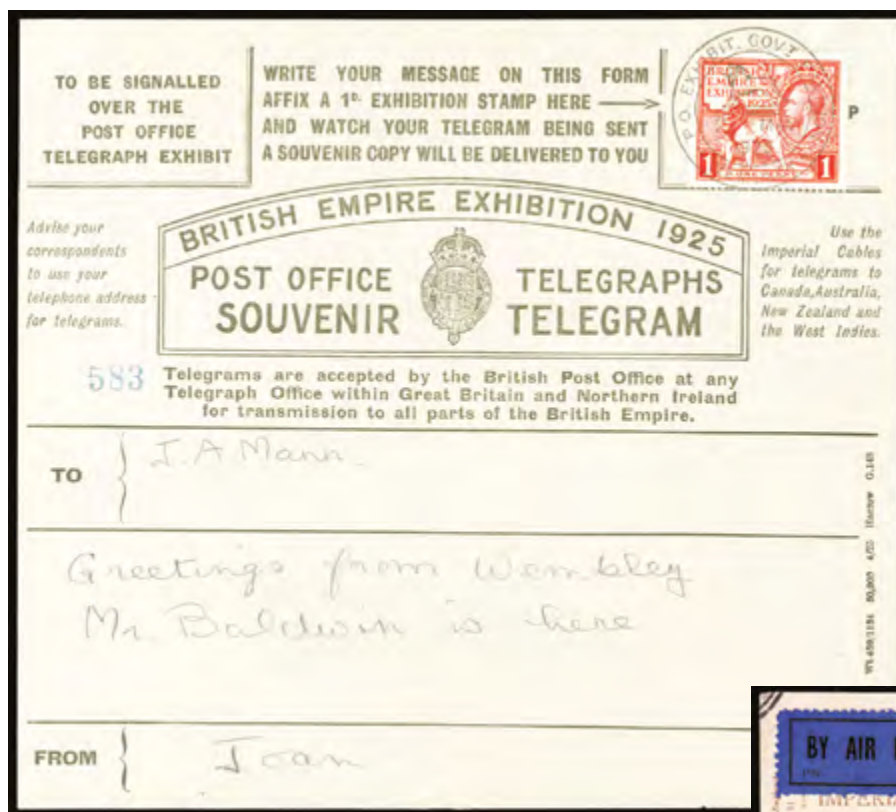 TO BE SIGNALLED
OVER THE
POST OFFICE
TELEGRAPH EXHIBIT
WRITE YOUR MESSAGE ON THIS FORM
AFFIX A 1D. EXHIBITION STAMP HERE
AND WATCH YOUR TELEGRAM BEING SENT
A SOUVENIR COPY WILL BE DELIVERED TO YOU
P.O. EXHIBIT. GOVT
BRITISH
EMPIRE
EXHIBITION
1925
1 ONE PENNY 1
P
Advise your
correspondents
to use your
telephone address
for telegrams.
BRITISH EMPIRE EXHIBITION 1925
POST OFFICE TELEGRAPHS
SOUVENIR TELEGRAM
Use the
Imperial Cables
for telegrams to
Canada, Australia,
New Zealand and
the West Indies.
583
Telegrams are accepted by the British Post Office at any
Telegraph Office within Great Britain and Northern Ireland
for transmission to all parts of the British Empire.
TO
J. A Mann.
Greetings from Wembley
Mr. Baldwin is here
FROM
Joan
Harrow G.143
BY AIR
IMPERI